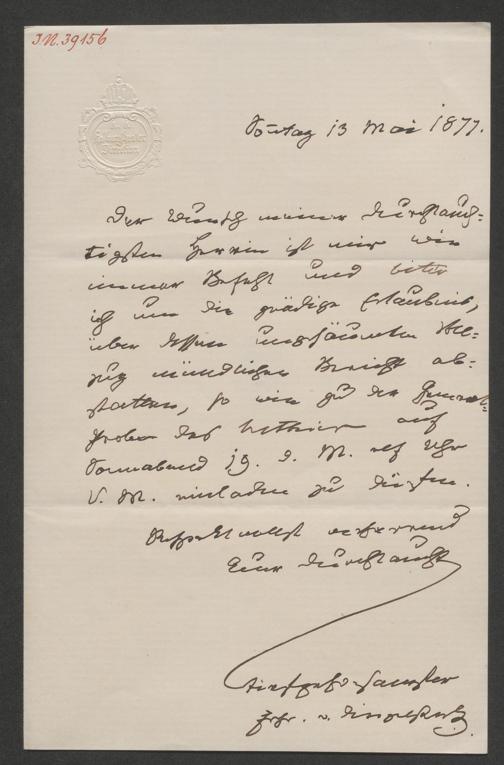 I.N. 39156
Sontag 13 Mai 1877.
Der Wunsch meiner durchlauch-
tigsten Herrin ist mir wie
immer Befehl und bitte
ich um die gnädige Erlaubniß,
über dessen ungesäumten Voll-
zug mündlichen Bericht ab-
statten, so wie zu der General-
probe des auf
Sonnabend 19. d. M. elf Uhr
V. M. einladen zu dürfen.
Respektvollst verharrend
Euer Durchlaucht
tiefgehorsamster
Frhr. v. Dingelstedt.